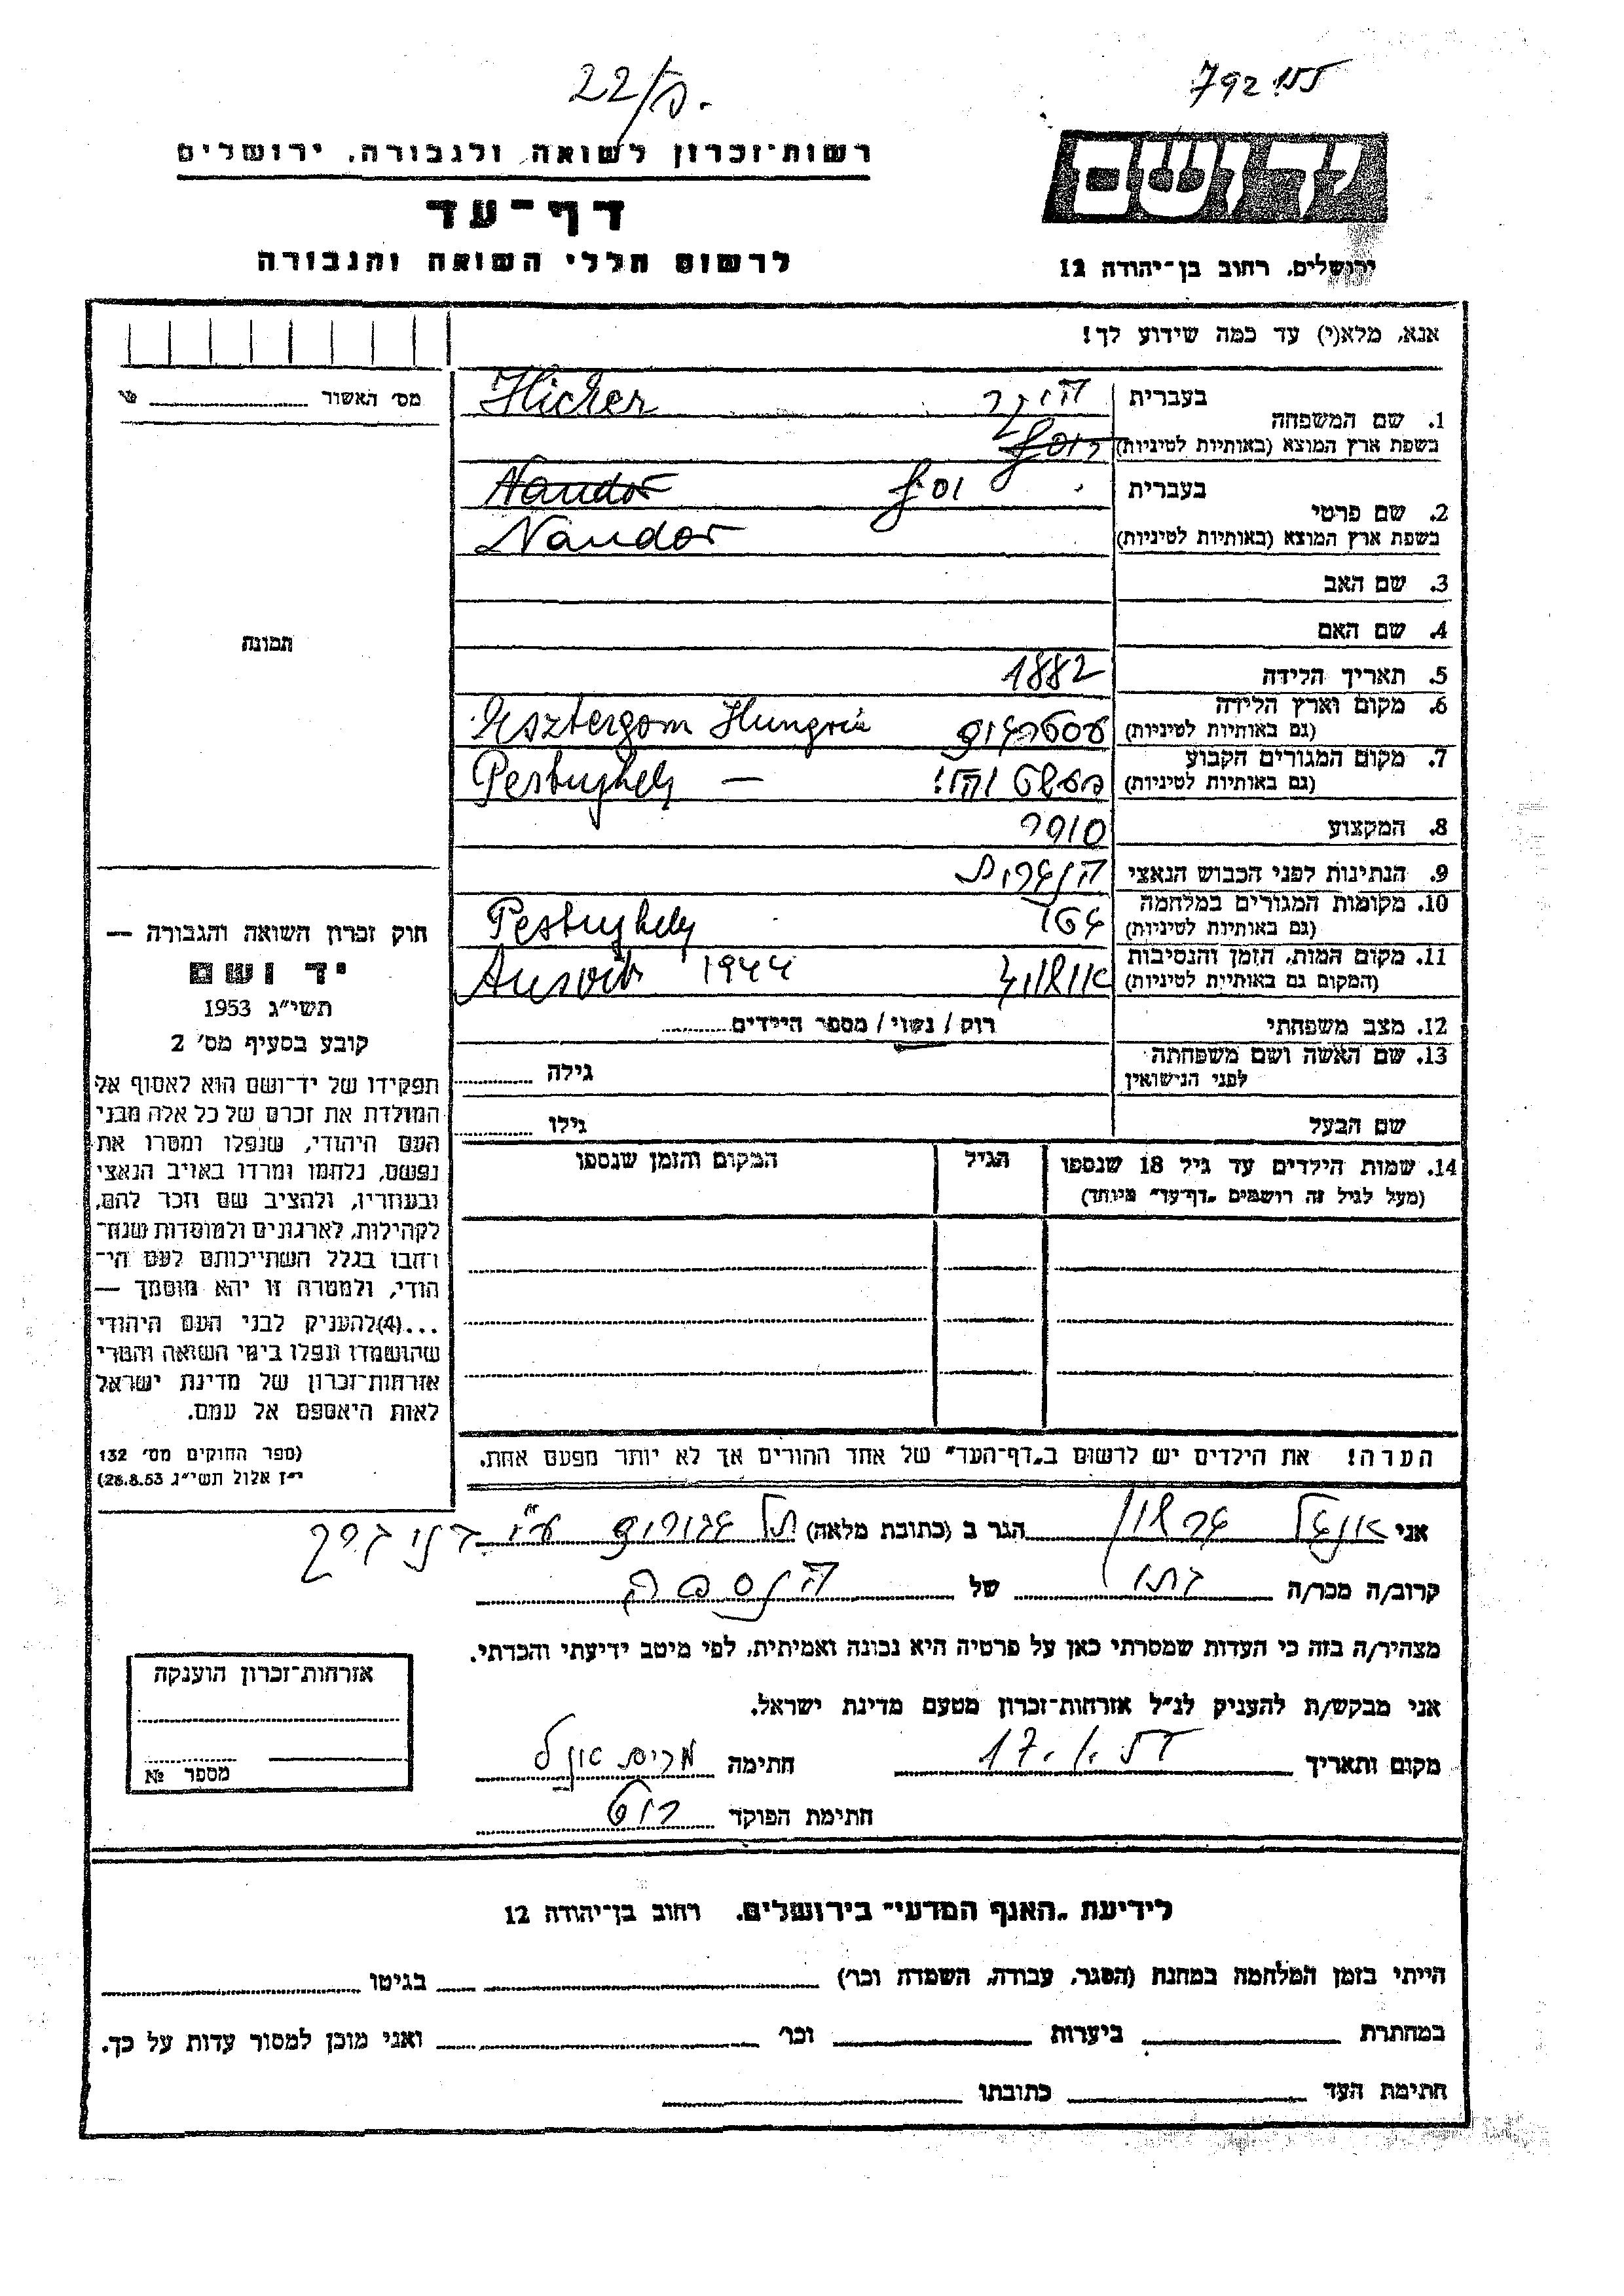 22/ק.
792155
רשות־זכרון לשואה ולגבורה, ירושלים
דף־עד
לרשום חללי השואה והגבורה
יד ושם
ירושלים, רחוב בן־יהודה 12
אנא, מלא(י) עד כמה שידוע לך!
מס' האשור
תמונה
חוק זכרון השואה והגבורה —
יד ושם
תשי״ג 1953
קובע בסעיף מס' 2
תפקידו של יד־ושם הוא לאסוף אל
המולדת את זכרם של כל אלה מבני
העם היהודי, שנפלו ומסרו את
נפשם, נלחמו ומרדו באויב הנאצי
ובעוזריו, ולהציב שם וזכר להם,
לקהילות, לארגונים ולמוסדות שנח־
רבו בגלל השתייכותם לעם הי־
הודי, ולמטרה זו יהא מוסמך —
...(4) להעניק לבני העם היהודי
שהושמדו ונפלו בימי השואה והמרי
אזרחות־זכרון של מדינת ישראל
לאות היאספם אל עמם.
(ספר החוקים מס' 132
י״ז אלול תשי״ג 28.8.53)
1. שם המשפחה
בעברית היקר Hicker
בשפת ארץ המוצא (באותיות לטיניות)
2. שם פרטי
בעברית יוסף Nandor
בשפת ארץ המוצא (באותיות לטיניות) Nandor
3. שם האב
4. שם האם
5. תאריך הלידה 1882
6. מקום וארץ הלידה
(גם באותיות לטיניות) Esztergom Hungria
7. מקום המגורים הקבוע
(גם באותיות לטיניות) Pestujhely —
8. המקצוע סוחר
9. הנתינות לפני הכבוש הנאצי הונגרית
10. מקומות המגורים במלחמה
(גם באותיות לטיניות) Pestujhely
11. מקום המות, הזמן והנסיבות
(המקום גם באותיות לטיניות) אושוויץ 1944
12. מצב משפחתי רוק / נשוי / מספר הילדים
13. שם האשה ושם משפחתה
לפני הנישואין גילה
שם הבעל גילו
14. שמות הילדים עד גיל 18 שנספו הגיל המקום והזמן שנספו
(מעל לגיל זה רושמים „דף־עד״ מיוחד)
הערה! את הילדים יש לרשום ב„דף־העד״ של אחד ההורים אך לא יותר מפעם אחת.
אני הגר ב (כתובת מלאה)
קרוב/ה מכר/ה של
מצהיר/ה בזה כי העדות שמסרתי כאן על פרטיה היא נכונה ואמיתית, לפי מיטב ידיעתי והכרתי.
אני מבקש/ת להעניק לנ״ל אזרחות־זכרון מטעם מדינת ישראל.
מקום ותאריך 17.1. חתימה מרים
חתימת הפוקד
אזרחות־זכרון הוענקה
מספר №
לידיעת „האגף המדעי״ בירושלים, רחוב בן־יהודה 12
הייתי בזמן המלחמה במחנה (הסגר, עבודה, השמדה וכו') בגיטו
במחתרת ביערות וכו' ואני מוכן למסור עדות על כך.
חתימת העד כתובתו